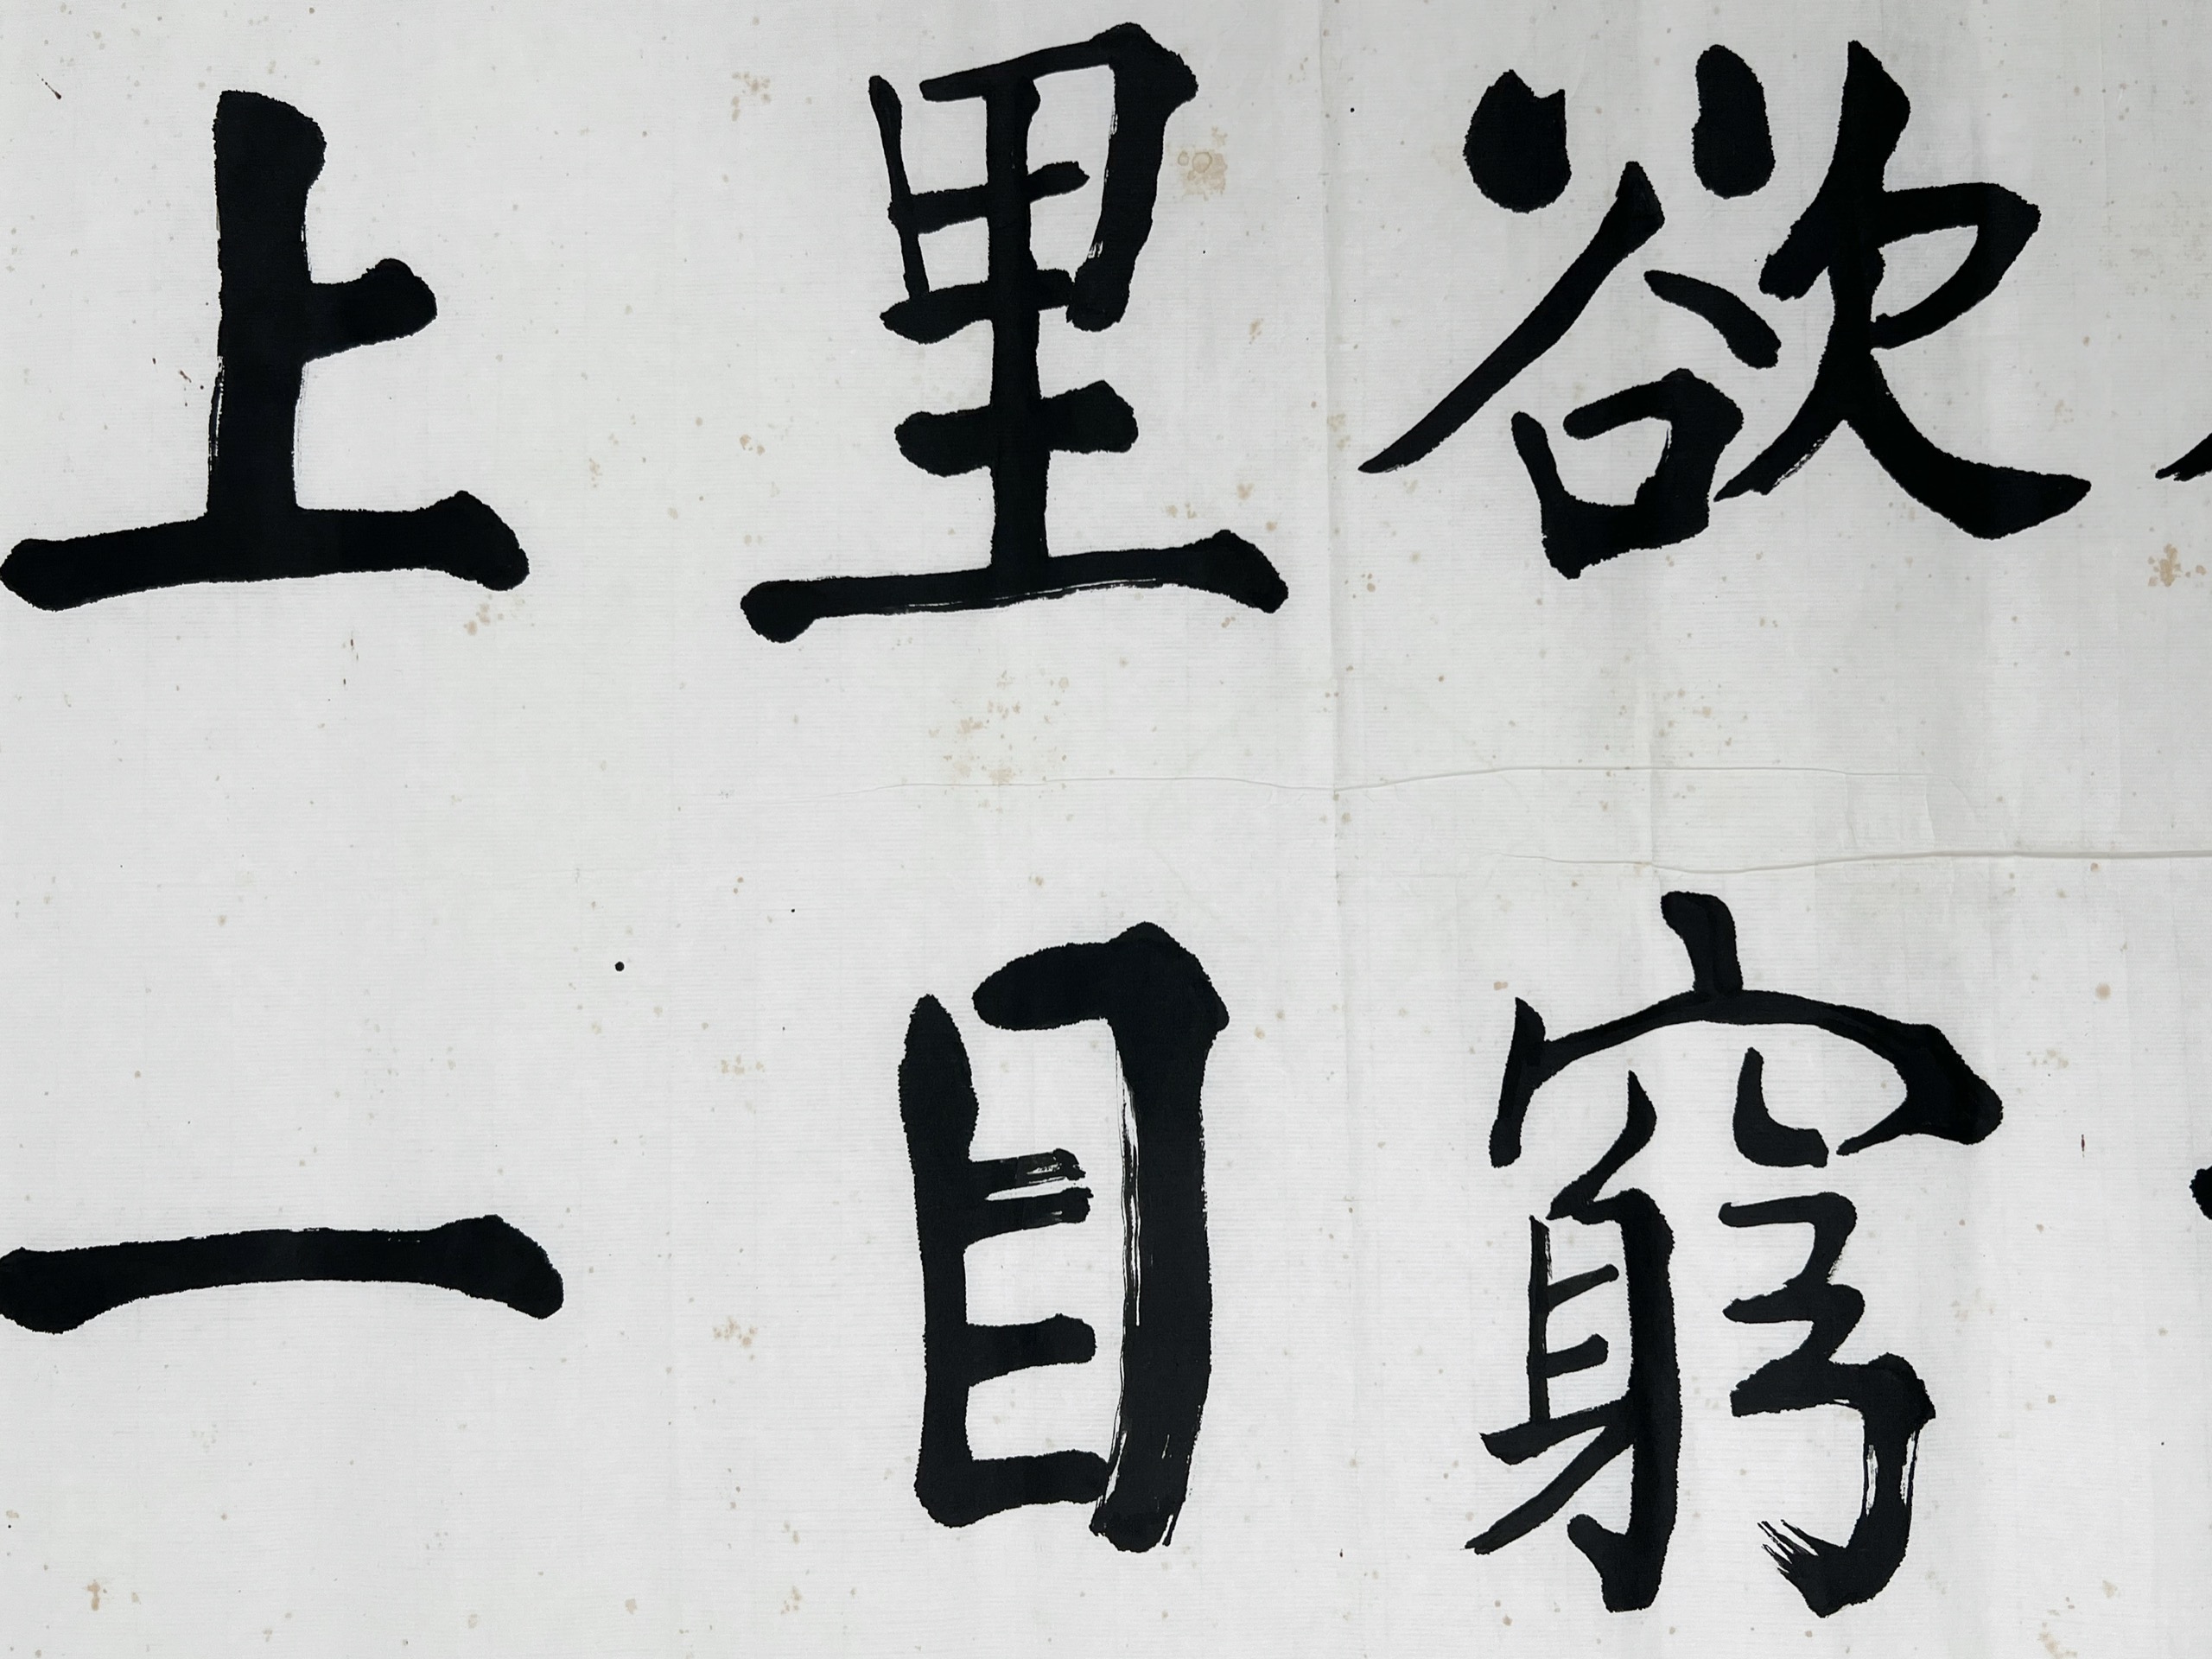 欲窮
里目
上一